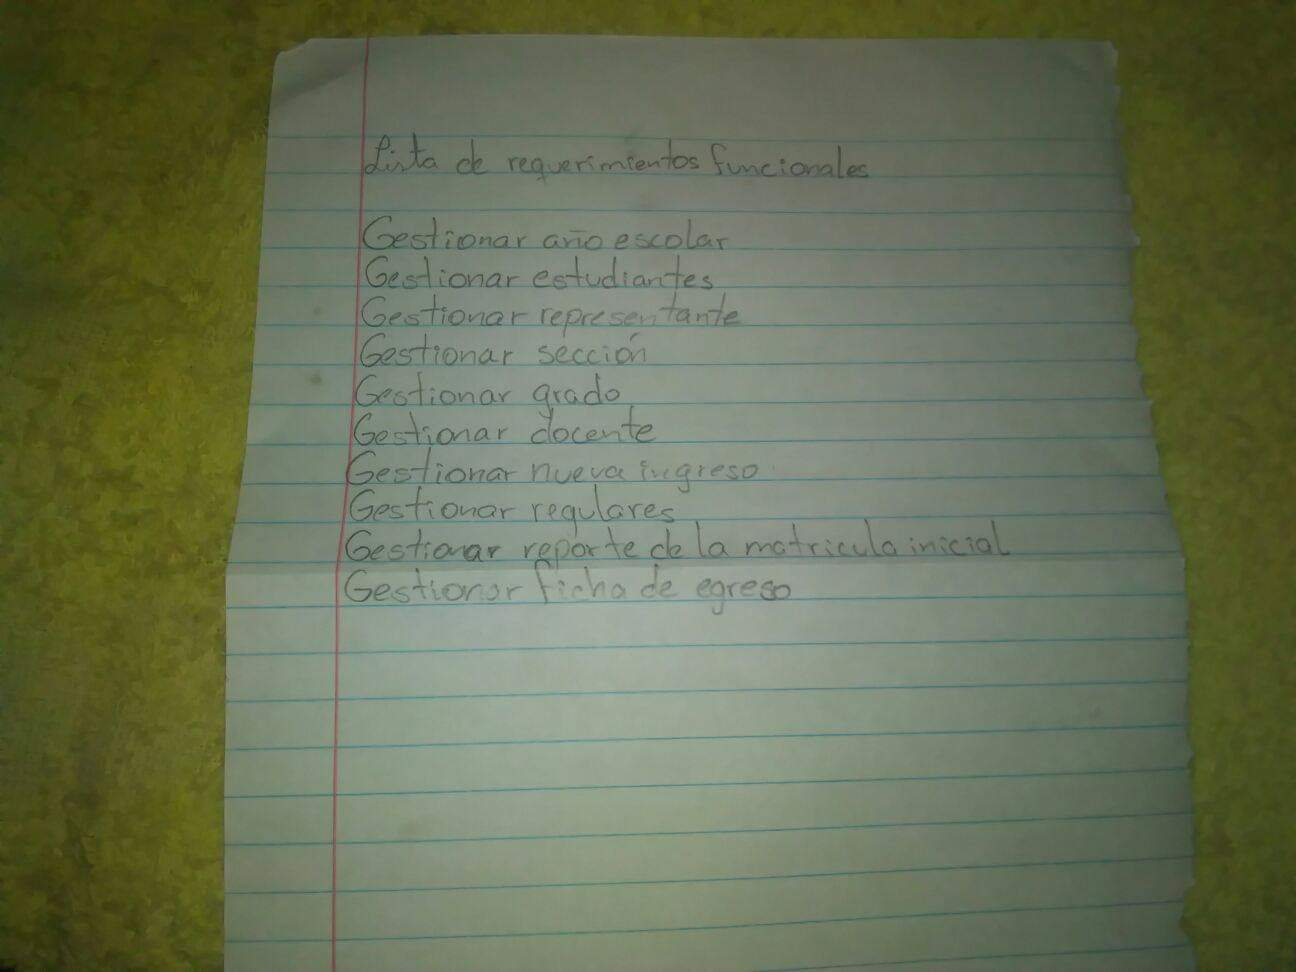 Lista de requerimientos funcionales
Gestionar año escolar
Gestionar estudiantes
Gestionar representante
Gestionar sección
Gestionar grado
Gestionar docente
Gestionar nueva ingreso
Gestionar regulares
Gestionar reporte de la matricula inicial
Gestionar ficha de egreso